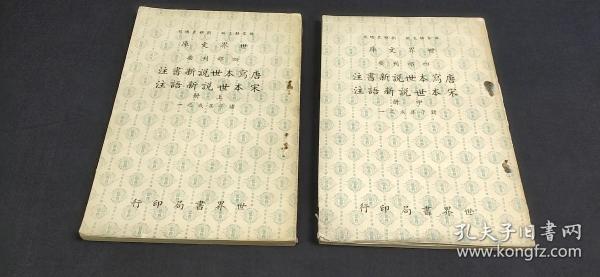 世界文庫
四部刊要
唐寫本世說新書注
宋本世說新語注
上冊
諸子集成之一
世界書局印行
世界文庫
四部刊要
唐寫本世說新書注
宋本世說新語注
冊
諸子集成之一
世界書局印行
孔夫子旧书网
www.kongfz.com